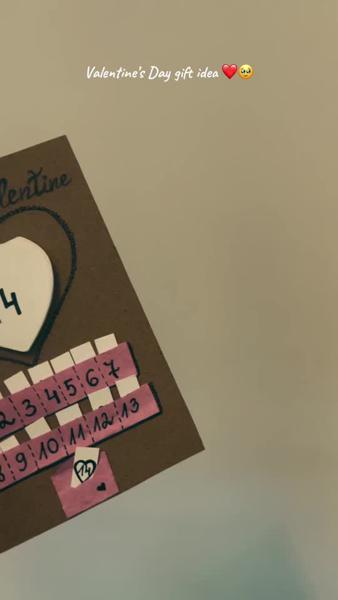 Valentine's Day gift idea ❤️🥹
lentine
4
2 3 4 5 6 7
8 9 10 11 12 13
14